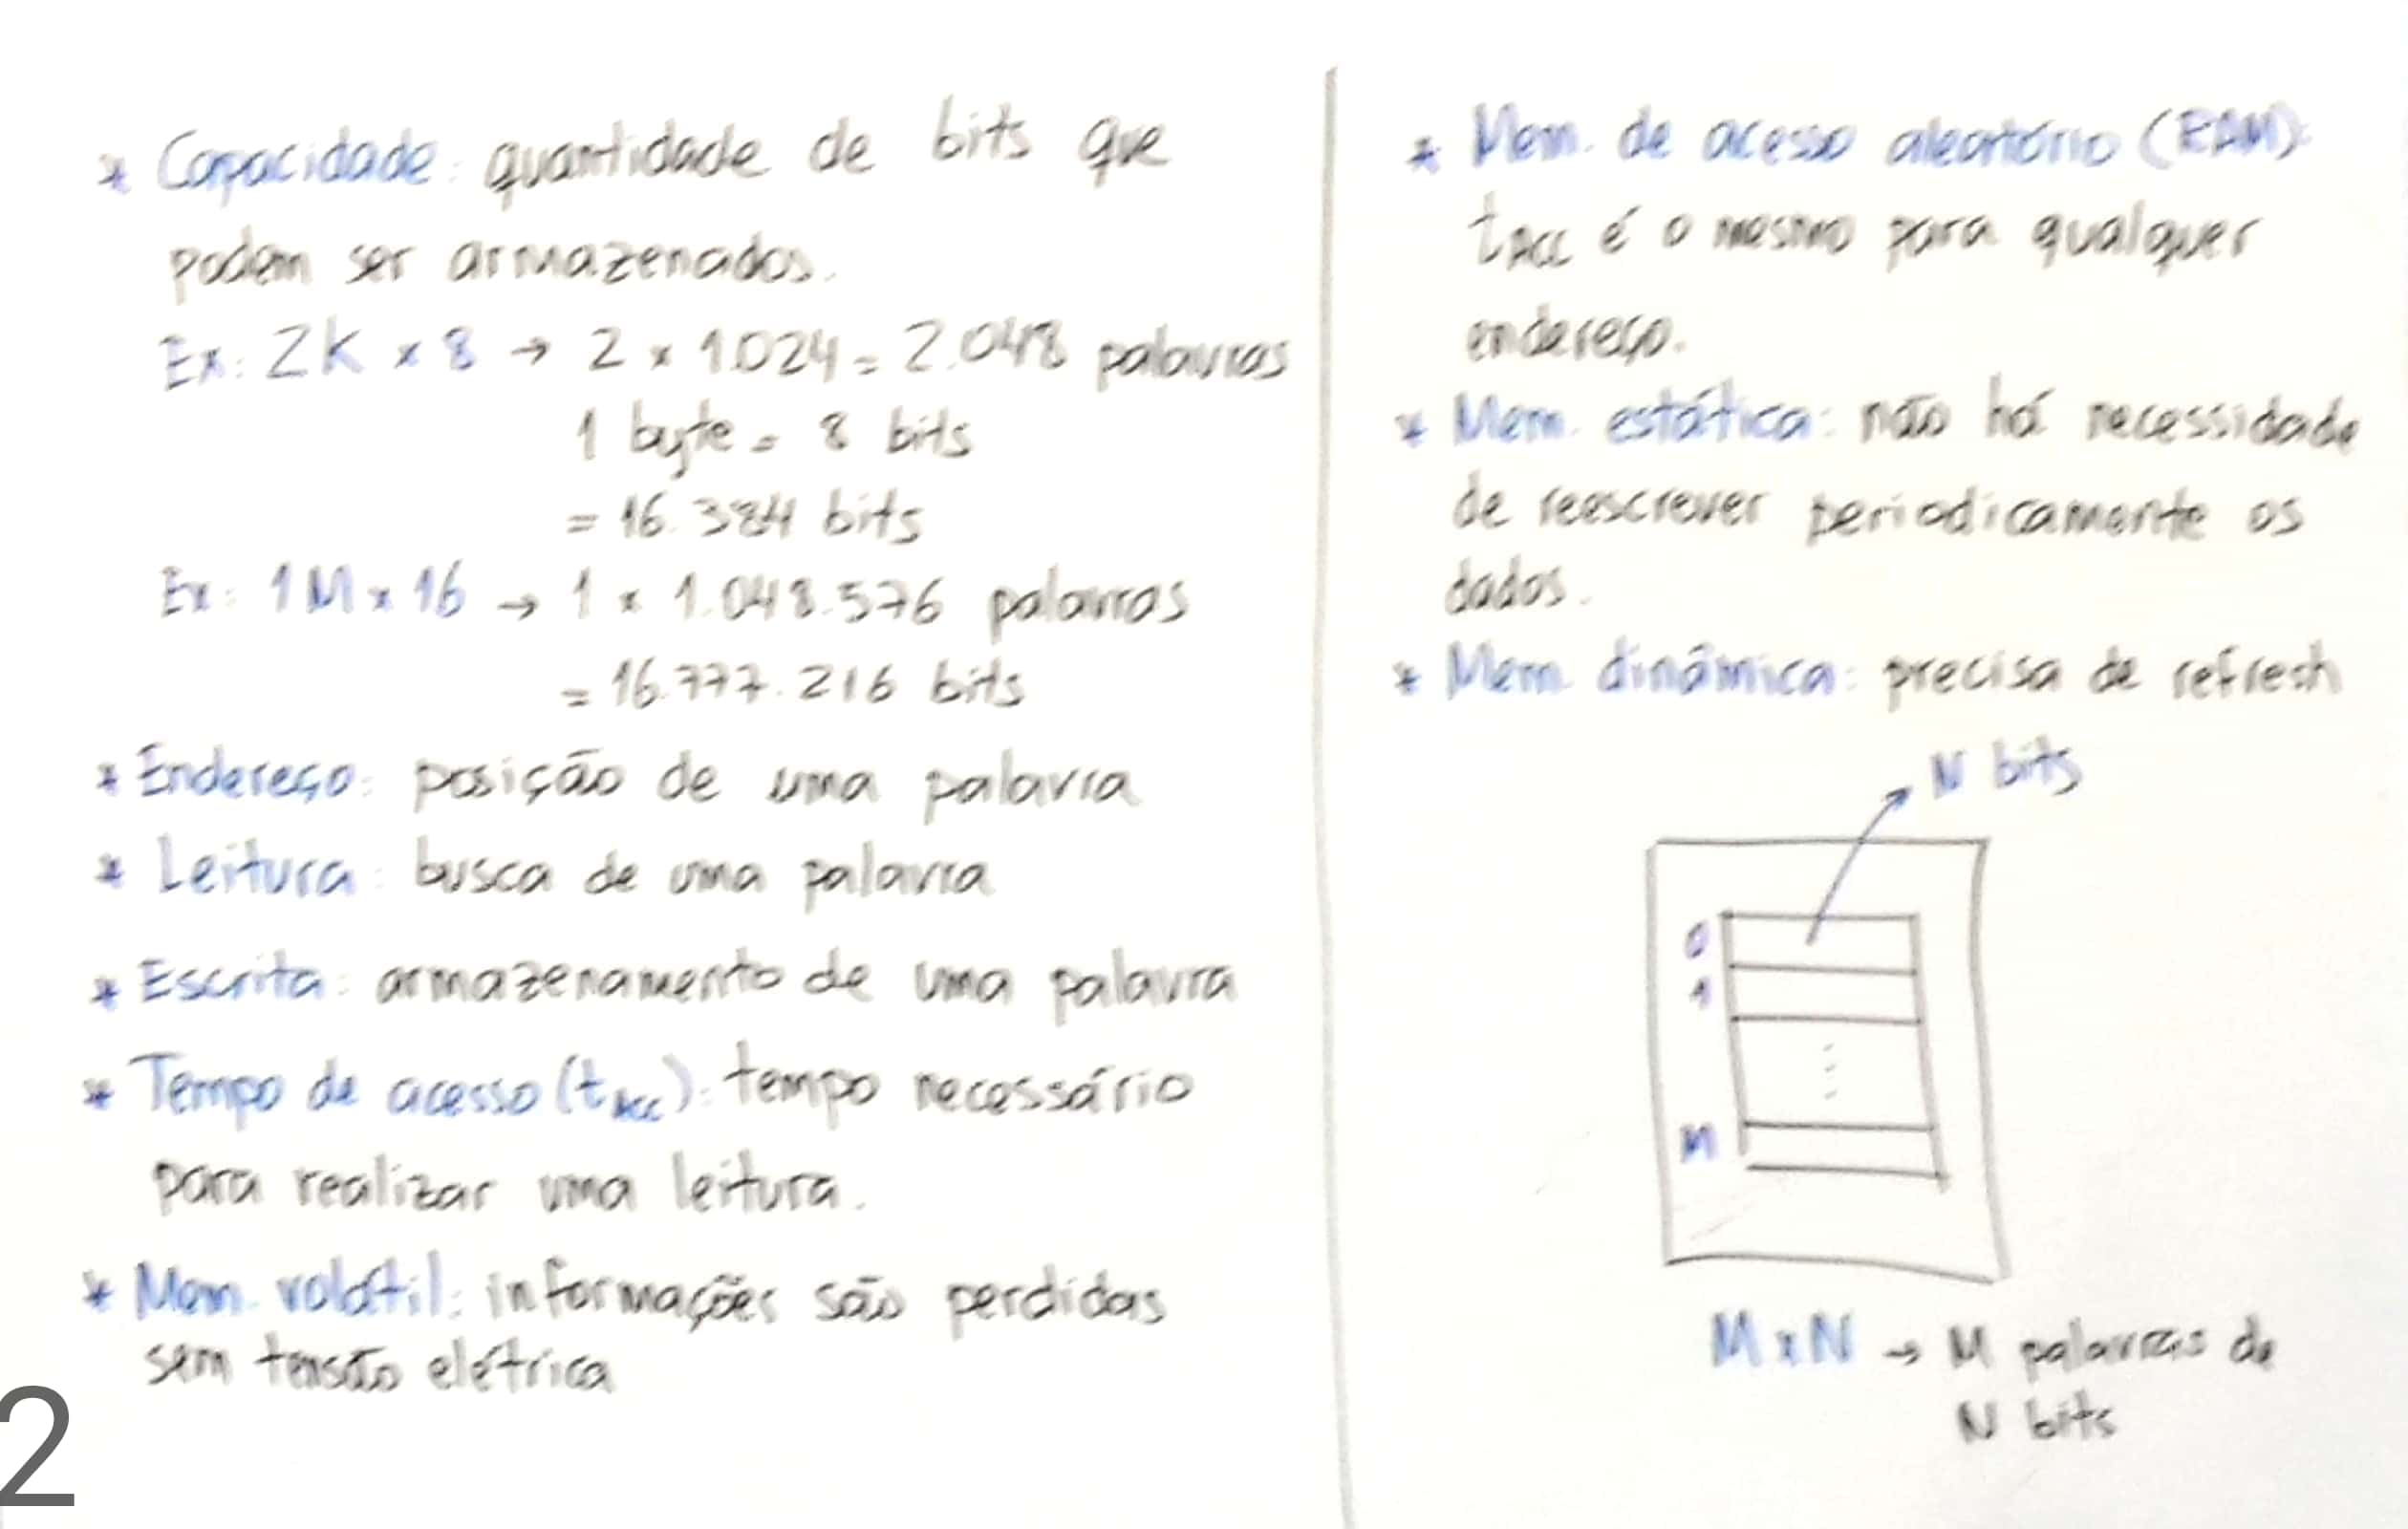 * Capacidade: quantidade de bits que
podem ser armazenados.
Ex: 2K x 8 → 2 x 1.024 = 2.048 palavras
1 byte = 8 bits
= 16.384 bits
Ex: 1M x 16 → 1 x 1.048.576 palavras
= 16.777.216 bits
* Endereço: posição de uma palavra
* Leitura: busca de uma palavra
* Escrita: armazenamento de uma palavra
* Tempo de acesso (tACC): tempo necessário
para realizar uma leitura.
* Mem. volátil: informações são perdidas
sem tensão elétrica
2
* Mem. de acesso aleatório (RAM):
tACC é o mesmo para qualquer
endereço.
* Mem. estática: não há necessidade
de reescrever periodicamente os
dados.
* Mem. dinâmica: precisa de refresh
N bits
0
1
M
M x N → M palavras de
N bits